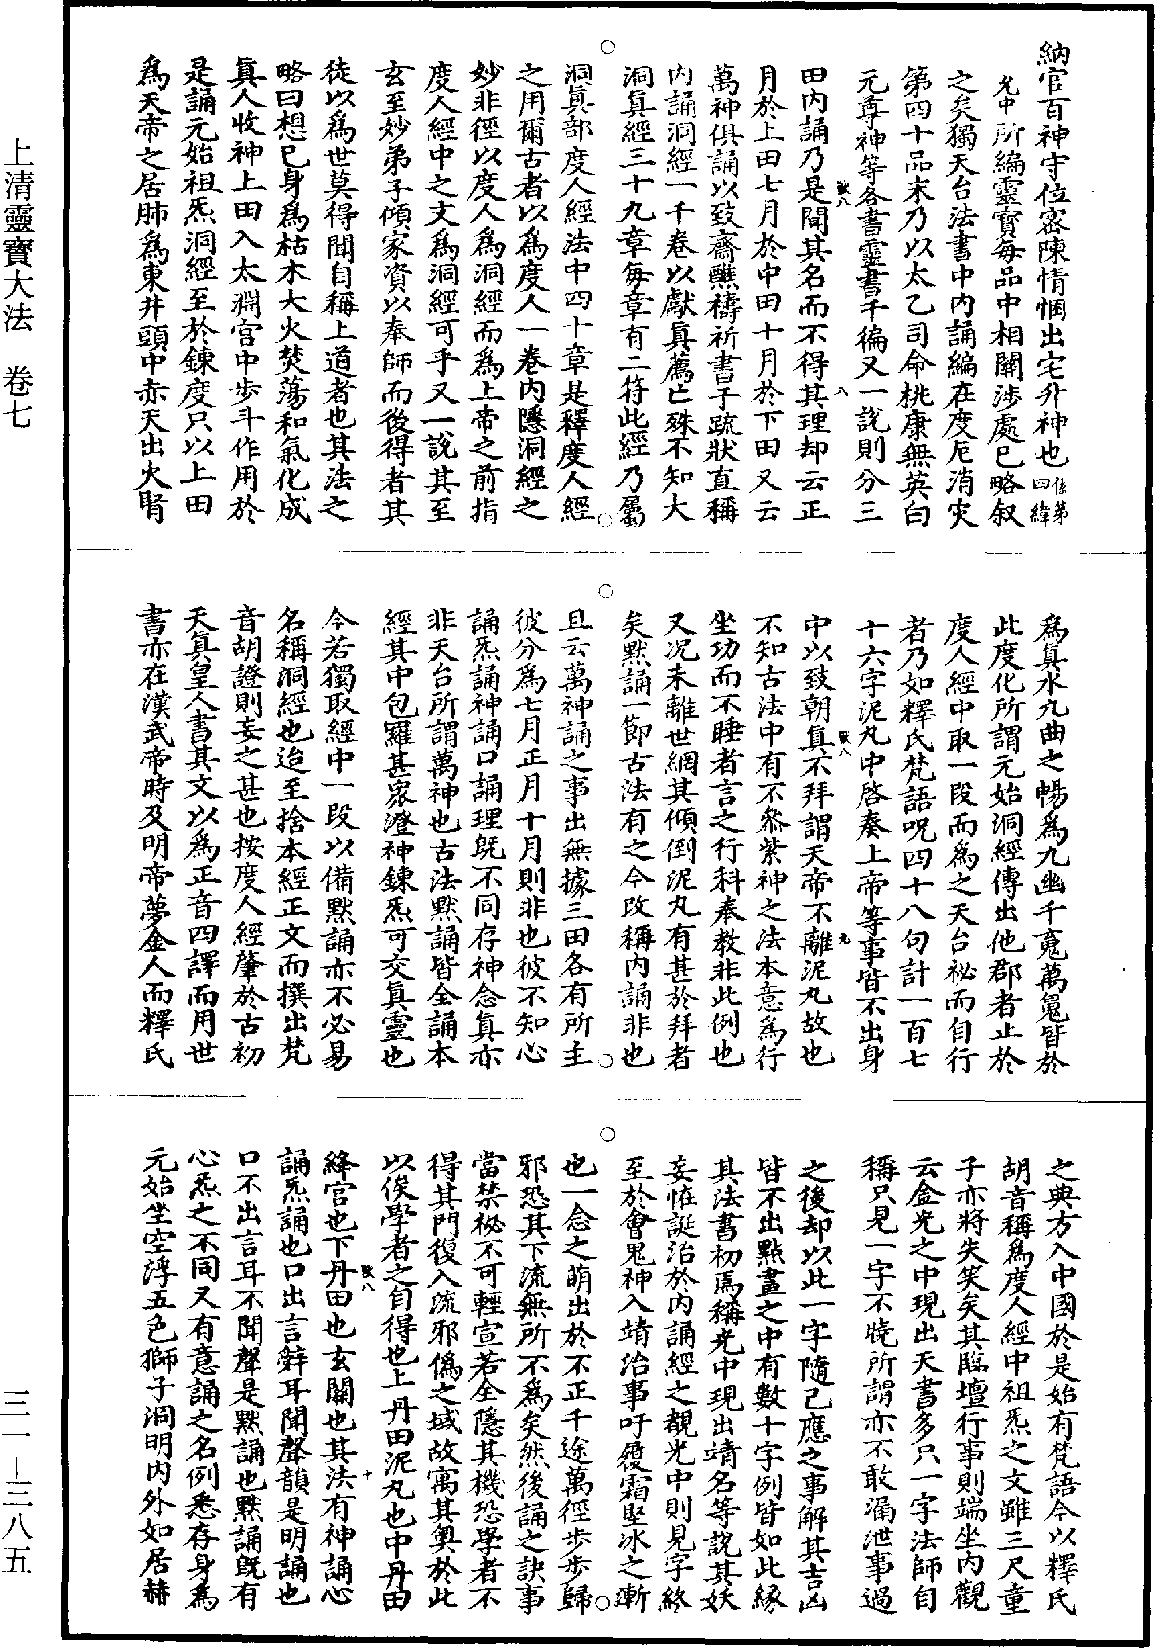 上清靈寶大法　卷七
三一—三八五
納官百神守位密陳情悃出宅升神也係第四緯
允中所編靈寶每品中相關涉處已略叙
之矣獨天台法書中內誦編在度厄消灾
第四十品末乃以太乙司命桃康無英白
元尊神等各書靈書千徧又一說則分三
田內誦乃是聞其名而不得其理却云正
月於上田七月於中田十月於下田又云
萬神俱誦以致齋醮禱祈書子疏狀直稱
內誦洞經一千卷以獻真薦亡殊不知大
洞真經三十九章每章有二符此經乃屬
洞真部度人經法中四十章是釋度人經
之用爾古者以為度人一卷內隱洞經之
妙非徑以度人為洞經而為上帝之前指
度人經中之文為洞經可乎又一說其至
玄至妙弟子傾家資以奉師而後得者其
徒以為世莫得聞自稱上道者也其法之
略曰想已身為枯木大火焚蕩和氣化成
真人收神上田入太淵宫中步斗作用於
是誦元始祖炁洞經至於鍊度只以上田
為天帝之居肺為東井頭中赤天出火腎
為真水九曲之暢為九幽千䰟萬䰟皆於
此度化所謂元始洞經傳出他郡者止於
度人經中取一段而為之天台祕而自行
者乃如釋氏梵語呪四十八句計一百七
十六字泥丸中啓奏上帝等事皆不出身
中以致朝真不拜謂天帝不離泥丸故也
不知古法中有不叅紫神之法本意為行
坐功而不睡者言之行科奉教非此例也
又况未離世網其傾倒泥丸有甚於拜者
矣默誦一節古法有之今改稱內誦非也
且云萬神誦之事出無據三田各有所主
彼分為七月正月十月則非也彼不知心
誦炁誦神誦口誦理旣不同存神念真亦
非天台所謂萬神也古法默誦皆全誦本
經其中包羅甚眾澄神鍊炁可交真靈也
今若獨取經中一段以備默誦亦不必易
名稱洞經也迨至捨本經正文而撰出梵
音胡證則妄之甚也按度人經肇於古初
天真皇人書其文以為正音四譯而用世
書亦在漢武帝時及明帝夢金人而釋氏
之典方入中國於是始有梵語今以釋氏
胡音稱為度人經中祖炁之文雖三尺童
子亦將失笑矣其臨壇行事則端坐內觀
云金光之中現出天書多只一字法師自
稱只見一字不曉所謂亦不敢漏泄事過
之後却以此一字隨己應之事解其吉凶
皆不出點畫之中有數十字例皆如此緣
其法書初焉稱光中現出靖名等說其妖
妄恠誕治於內誦經之覩光中則見字終
至於會鬼神入靖治事吁履霜堅冰之漸
也一念之萌出於不正千途萬徑步步歸
邪恐其下流無所不為矣然後誦之訣事
當禁祕不可輕宣若全隱其機恐學者不
得其門復入流邪僞之域故寓其奧於此
以俟學者之自得也上丹田泥丸也中丹田
絳宫也下丹田也玄關也其法有神誦心
誦炁誦也口出言辭耳聞聲韻是明誦也
口不出言耳不聞聲是默誦也默誦旣有
心炁之不同又有意誦之名例悉存身為
元始坐空浮五色獅子洞明內外如居赫